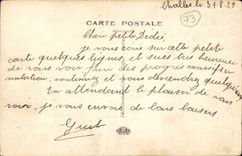 Challes le 31.8.29
CARTE POSTALE
73
Cher petit Dédé
je vous écris sur cette petite
carte quelques lignes, et suis très heureuse
de vous voir faire des progrès
natation, continuez et vous deviendrez quelqu'un
En attendant le plaisir de vous
voir, je vous envoie de bons baisers